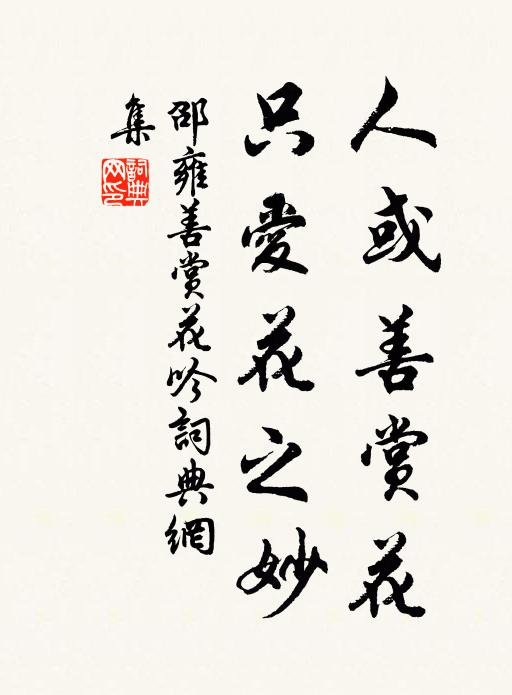 人或善賞花
只愛花之妙
邵雍善賞花吟詞典網
集
詞典网印